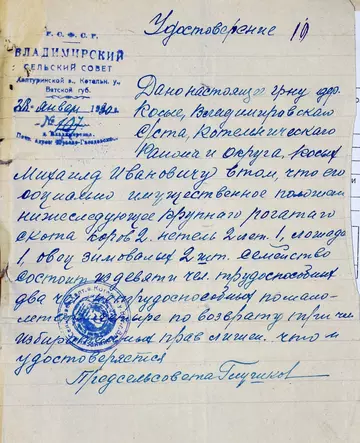 Удостоверение 10
Р. С. Ф. С. Р.
ВЛАДИМИРСКИЙ
СЕЛЬСКИЙ СОВЕТ
Халтуринской в., Котельн. у.,
Вятской губ.
28 января 1930 г.
№ 107
Дано настоящее гр-ну дер.
Косые, Владимировского
с/ста, Котельнического
района и округа, Косых
Михаилу Ивановичу в том, что его
социально имущественное положение
нижеследующее крупного рогатаго
скота коров 2. нетель 2 лет. 1, лошадь
1, овец зимовалых 2 шт. семейство
состоит из девяти чел. трудоспособных
два нетрудоспособных по мало-
по возврату при чем
избирательных прав лишен. что и
удостоверяется
Предсельсовета